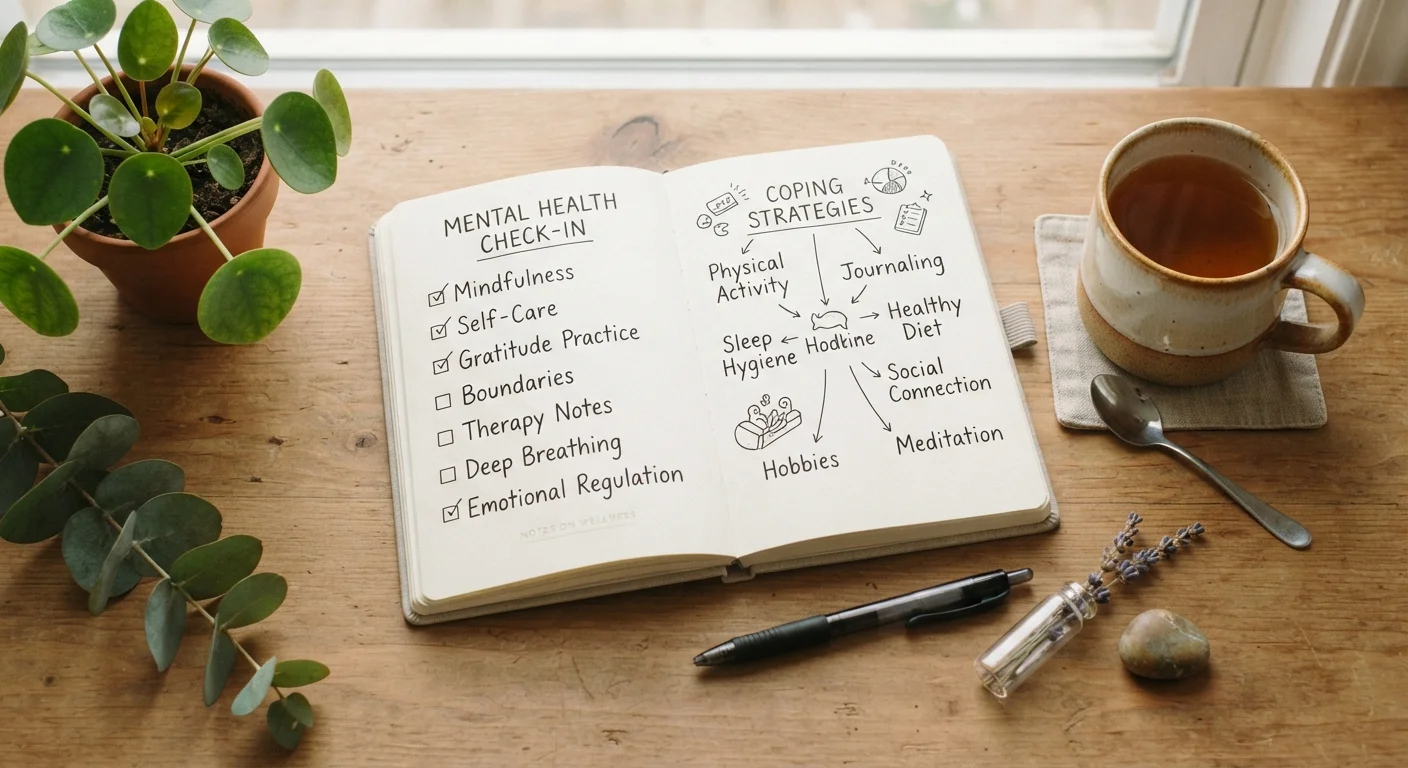 MENTAL HEALTH
CHECK-IN
Mindfulness
Self-Care
Gratitude Practice
Boundaries
Therapy Notes
Deep Breathing
Emotional Regulation
NOTES ON WELLNESS
COPING
STRATEGIES
Physical
Activity
Journaling
Sleep
Hygiene
Hodkine
Healthy
Diet
Social
Connection
Hobbies
Meditation